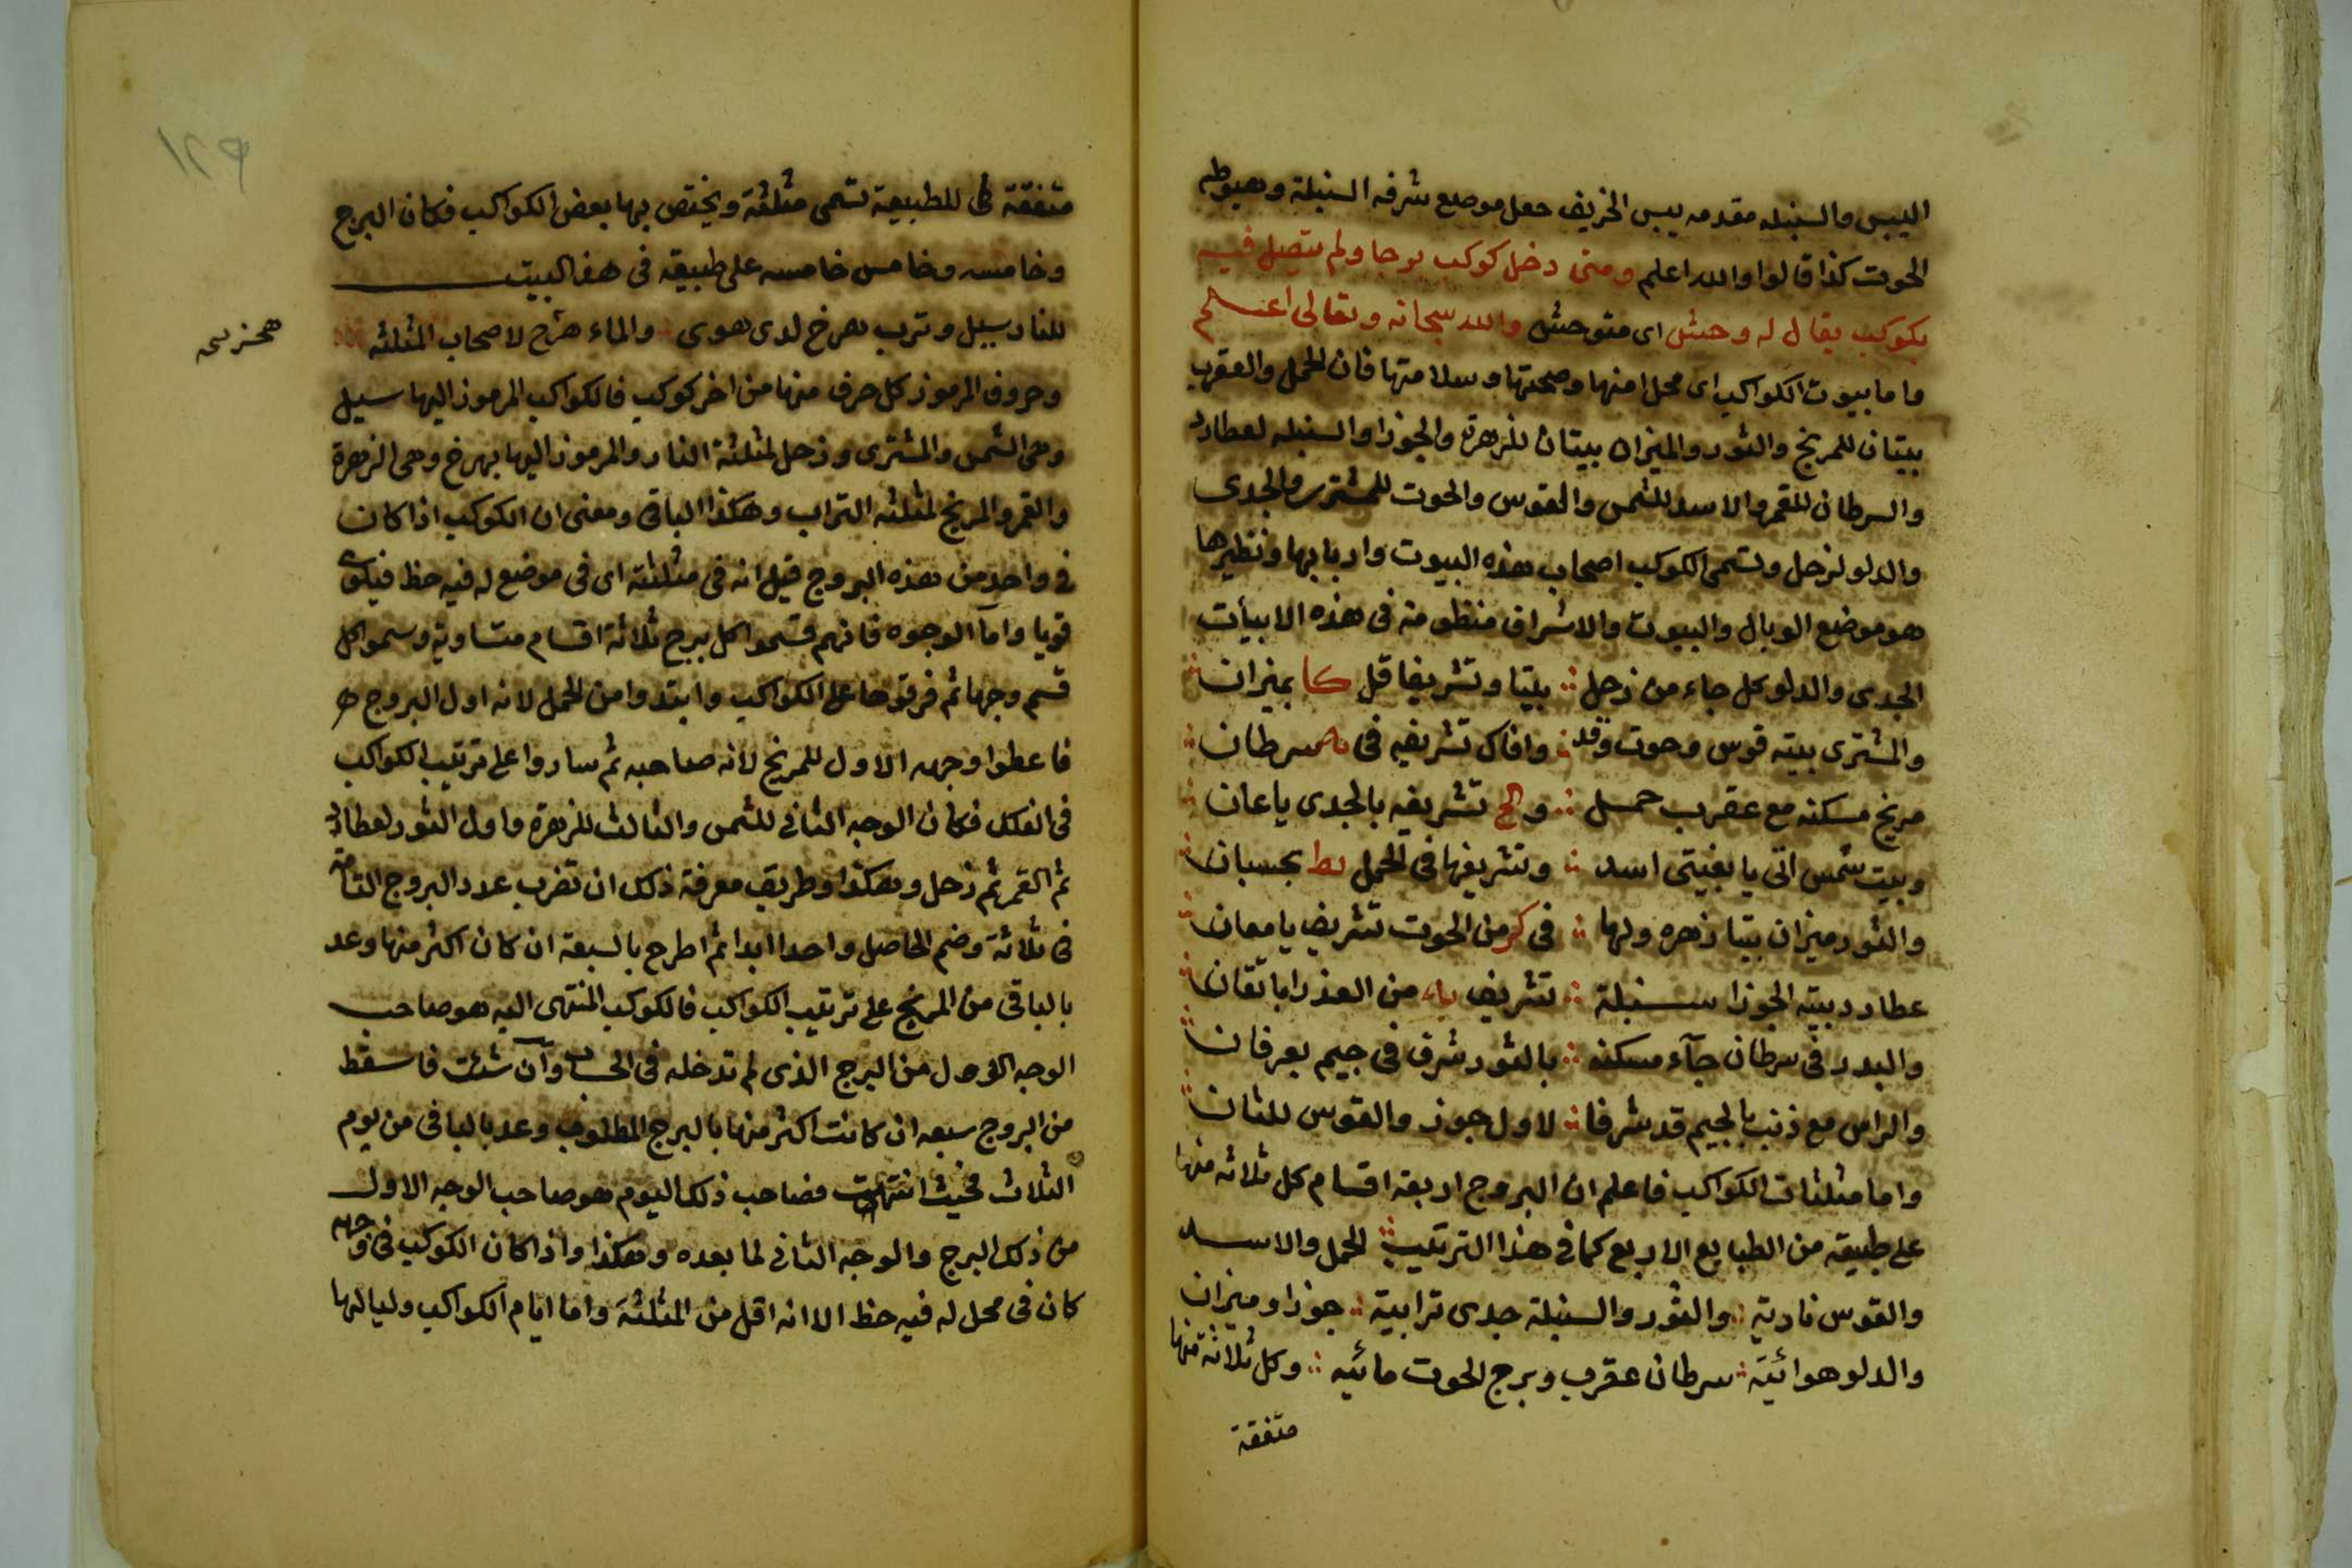 اليبس والسنبله مقدمه يبس الخريف جعل موضع شرفه السنبلة وهبوطه
الحوت كذا قالوا والله اعلم ومتى دخل كوكب برجا ولم يتصل فيه
بكوكب يقال له وحشى اى متوحش والله سبحانه وتعالى اعلم
واما بيوت الكواكب اى محل امنها وصحتها وسلامتها فان الحمل والعقرب
بيتان للمريخ والثور والميزان بيتان للزهرة والجوزا والسنبله لعطارد
والسرطان للقمر والاسد للشمس والقوس والحوت للمشترى والجدى
والدلو لزحل وتسمى الكوكب اصحاب هذه البيوت واربابها ونظيرها
هو موضع الوبال والبيوت والاشراف منظومة فى هذه الابيأت
الجدى والدلو كل جاء من زحل ؞ بيتا وتشريفا قل كا بميزان
والمشترى بيته قوس وحوت وقد ؞ وافاك تشريفه فى سرطان
مريخ مسكنه مع عقرب حمل ؞ و تشريفه بالجدى ياعان
وبيت شمس اتى يا بغيتى اسد ؞ وتشريفها فى الحمل يط بحسبان
والثور ميزان بيتا زهره ولها ؞ فى كز من الحوت تشريف يا معان
عطارد بيته الجوزا سنبلة ؞ تشريف ياء من العذرا باتقان
والبدر فى سرطان جآء مسكنه ؞ بالثور شرف فى جيم بعرفان
والراس مع ذنب بالجيم قد شرفا ؞ لاول جوز والقوس للثان
واما مثلثات الكواكب فاعلم ان البروج اربعة اقسام كل ثلاثه منها
على طبيعة من الطبايع الاربع كما فى هذا الترتيب ؞ الحمل والاسد
والقوس نارية ؞ والثور والسنبلة جدى ترابية ؞ جوزا وميزان
والدلو هوائية ؞ سرطان عقرب وبرج الحوت مائيه ؞ وكل ثلاثة منها
متفقة
١٢٩
متفقة فى للطبيعة تسمى مثلثة ويختص بها بعض الكواكب فكان البرج
وخامسه وخامس خامسه على طبيعة فى هذا البيت
للنار سيل وترب بهرخ لدى هوى والماء هرخ لاصحاب المثلثه
وحروف المرموز كل حرف منها من اخر كوكب فالكواكب المرموز اليها سيل
وهى الشمس والمشترى وزحل لمثلثة النار والمرموز اليها بهرخ وهى الزهرة
والقمر والمريخ لمثلثه التراب وهكذا الباقى ومعنى ان الكوكب اذا كان
فى واحد من هذه البروج قيل انه فى مثلثته اى فى موضع له فيه حظ فيكون
قويا واما الوجوه فانهم قسموا كل برج ثلاثة اقسام متساوية وسموا كل
قسم وجها ثم فرقوها على الكواكب وابتدوا من الحمل لانه اول البروج
فاعطوا وجهه الاول للمريخ لانه صاحبه ثم ساروا على ترتيب الكواكب
فى الفلك فكان الوجه الثانى للشمس والثالث للزهرة واول الثور لعطارد
ثم القمر ثم زحل وهكذا وطريق معرفة ذلك ان تضرب عدد البروج التامة
فى ثلاثة وضم الحاصل واحدا ابدا ثم اطرح بالسبعة ان كان اكثر منها وعد
بالباقى من المريخ على ترتيب الكواكب فالكوكب المنتهى اليه هو صاحب
الوجه الاول من البرج الذى لم تدخله فى الحساب وان شئت فاسقط
من البروج سبعه ان كانت اكثر منها بالبرج المطلوب وعد بالباقى من يوم
الثلاث فحيث انتهيت فصاحب ذلك اليوم هو صاحب الوجه الاول
من ذلك البرج والوجه الثانى لما بعده وهكذا واذا كان الكوكب فى وجهه
كان فى محل له فيه حظ الا انه اقل من المثلثة واما ايام الكواكب ولياليها